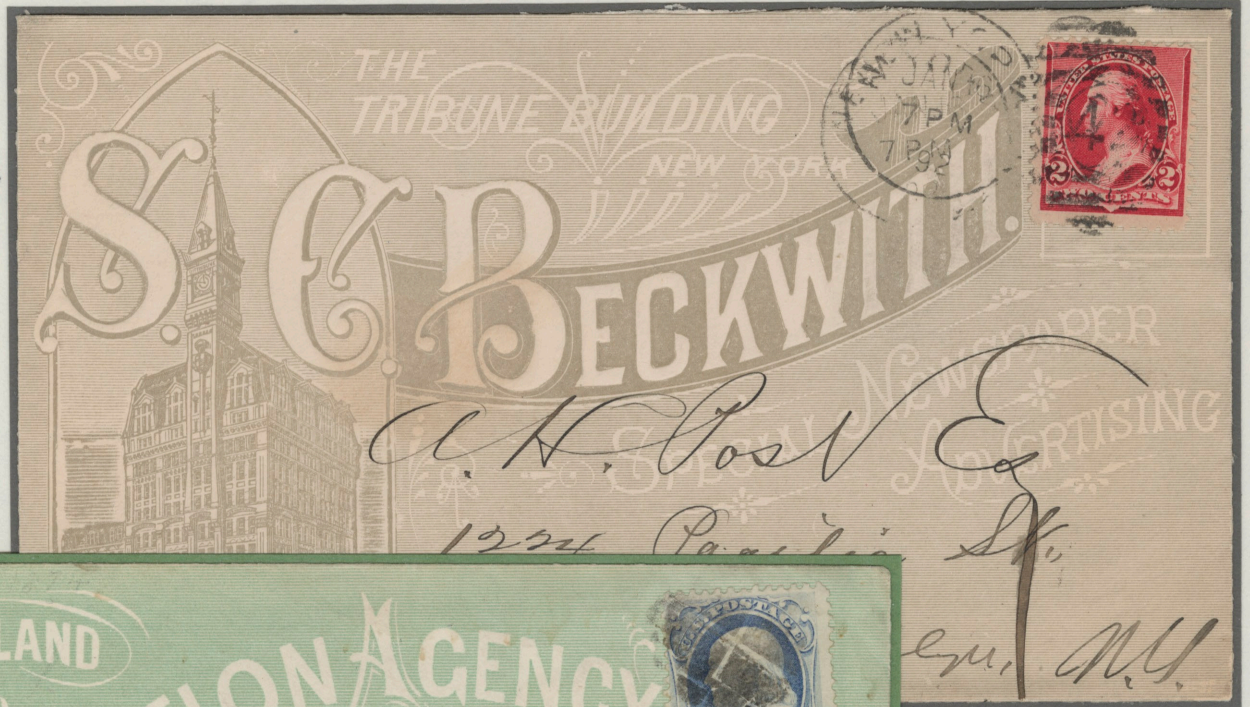 THE
TRIBUNE BUILDING
NEW YORK
S. C. BECKWITH.
SPECIAL NEWSPAPER
ADVERTISING
NEW YORK
JAN
7 PM
92
4
UNITED STATES POSTAGE
2 2
TWO CENTS
A. H. Post Esq
1224 Pacific St.
N.Y.
LAND
TION AGENCY
U.S. POSTAGE